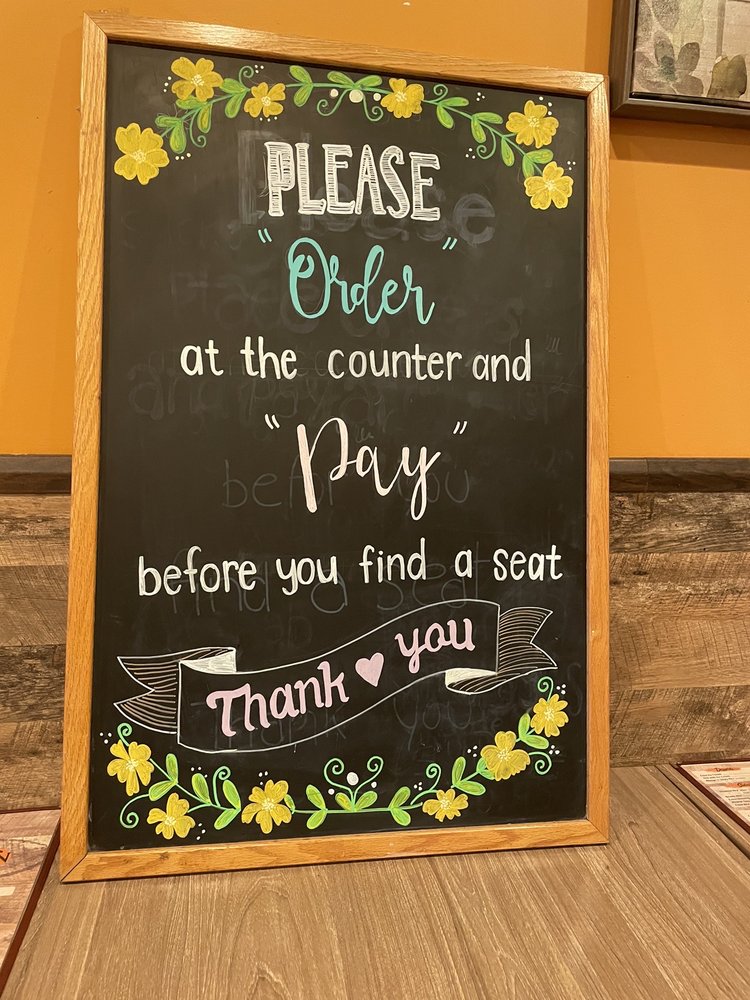 PLEASE
"Order"
at the counter and
"Pay"
before you find a seat
Thank you